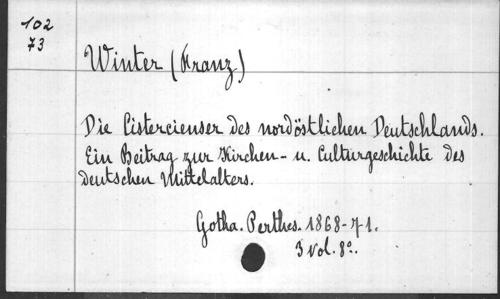 102
73
Winter (Franz)
Die Cistercienser des nordöstlichen Deutschlands.
Ein Beitrag zur Kirchen- u. Culturgeschichte des
deutschen Mittelalters.
Gotha. Perthes. 1868-71.
3 vol. 8°.